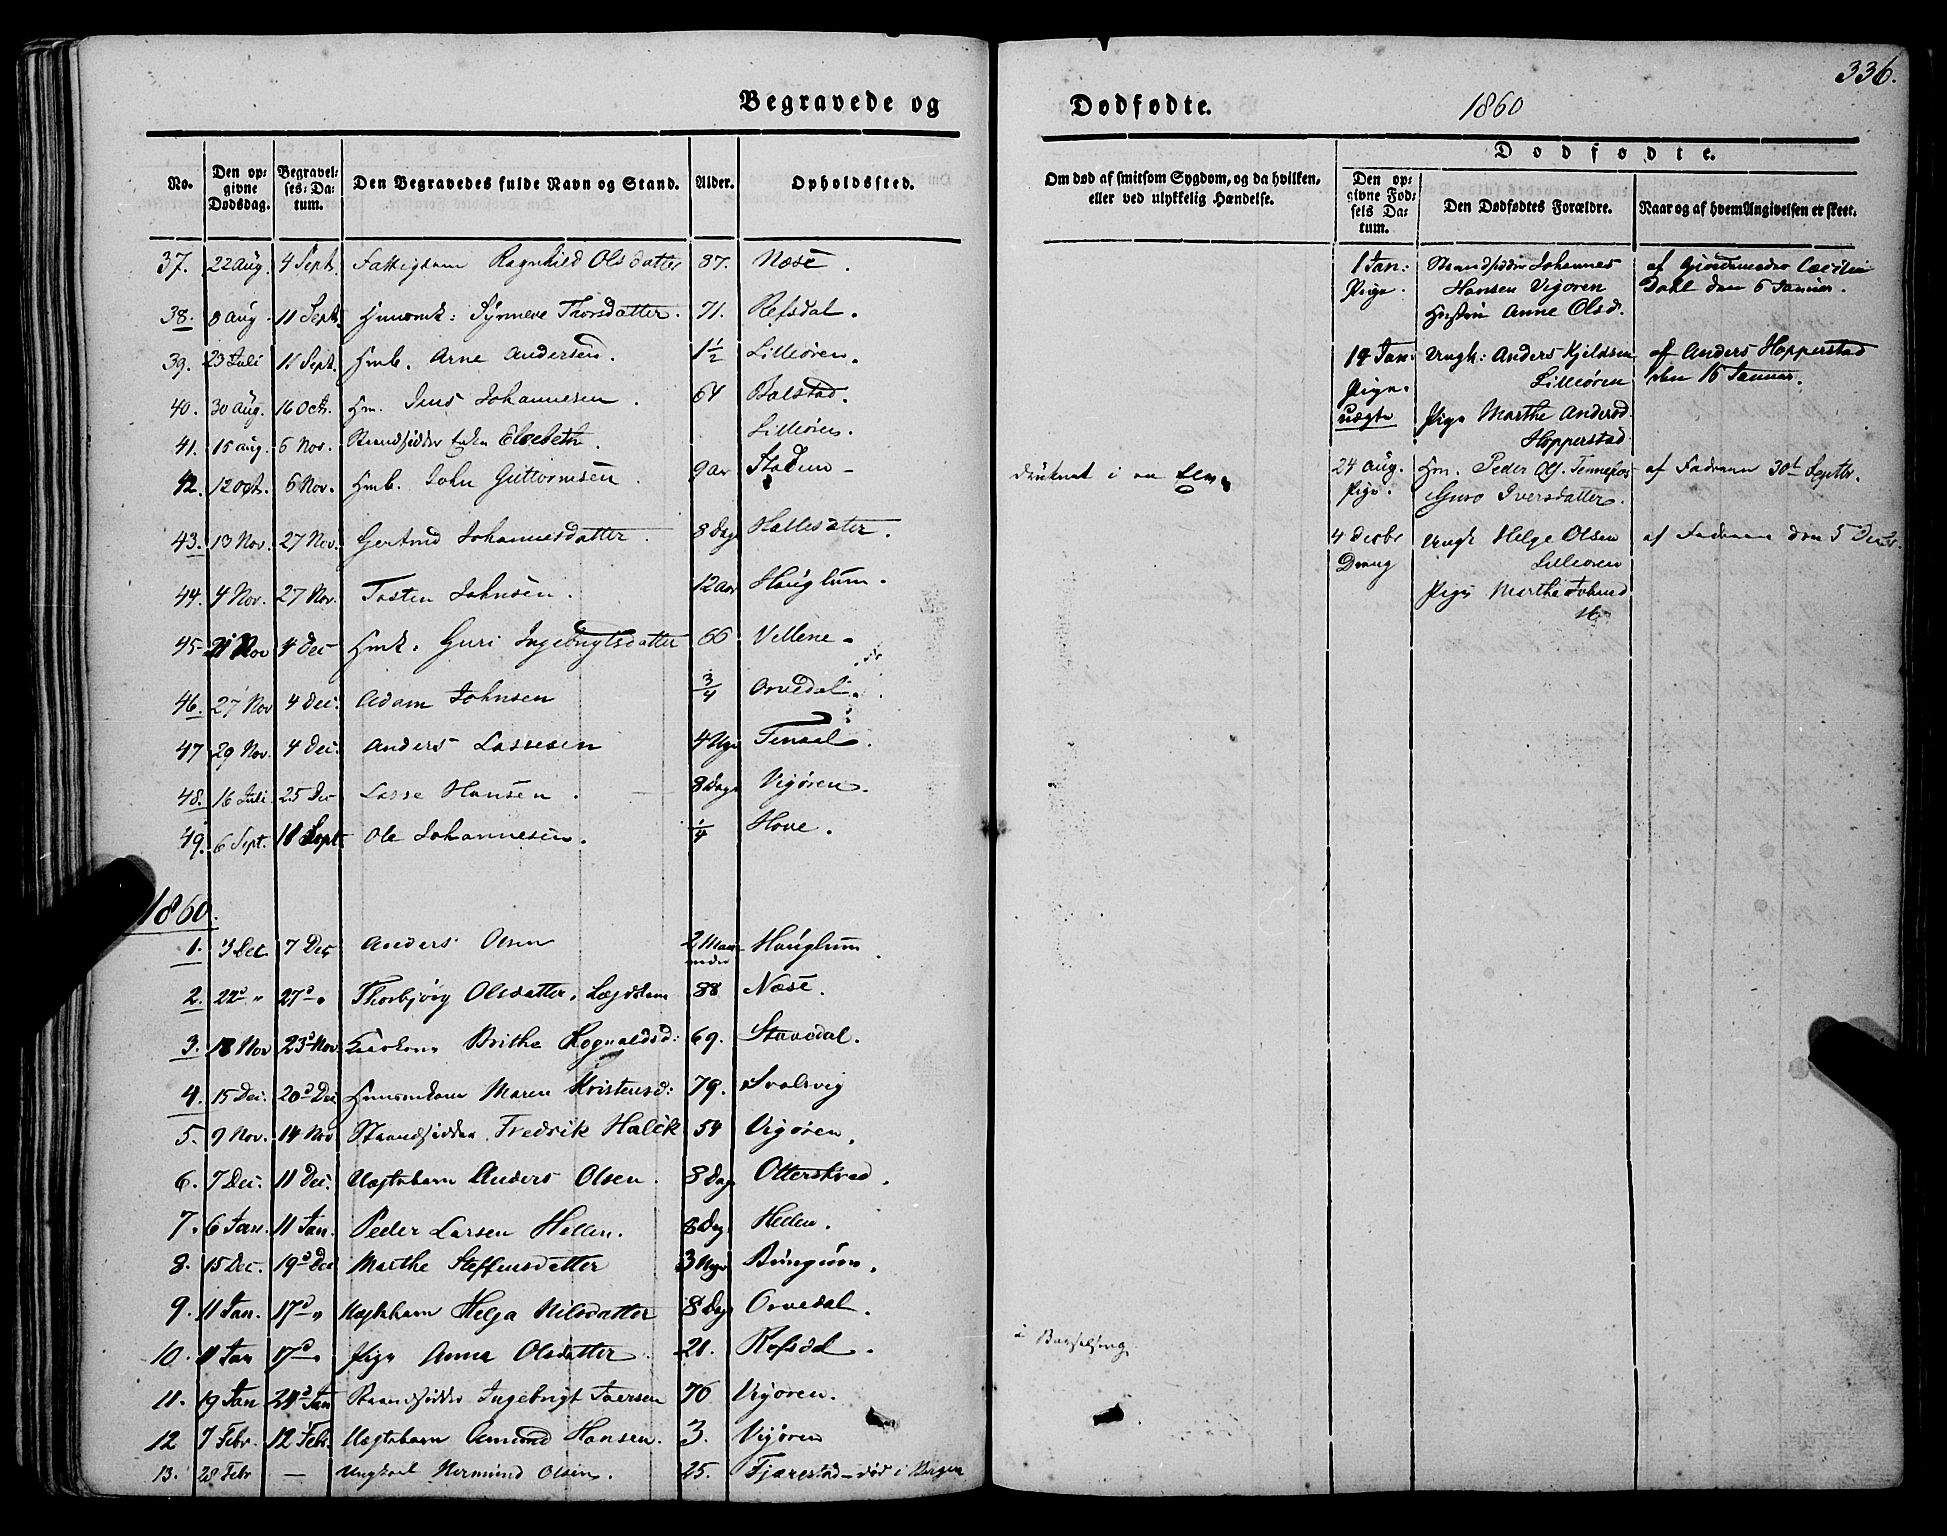 336.
Begravede og Dødfødte.
1860
No.
Den opgivne Dødsdag.
Begravelses-Datum.
Den Begravedes fulde Navn og Stand.
Alder.
Opholdssted.
Om død af smitsom Sygdom, og da hvilken, eller ved ulykkelig Hændelse.
Dødfødte.
Den opgivne Fødsels Datum.
Den Dødfødtes Forældre.
Naar og af hvem Angivelsen er skeet.
37. 22 Aug. 4 Sept. Ragnhild Olsdatter 87. Næse.
38. 8 Aug. 11 Sept. Synneve Thorsdatter. 71. Refsdal.
39. 23 Juli 11 Sept. Arne Andersen. 1 1/2 Lilleøren.
40. 30 Aug. 16 Oct. Jens Johannesen. 64 Balstad.
41. 15 Aug. 6 Nov. Elsebeth. Lilleøren.
42. 12 Oct. 6 Nov. John Guttormsen. 9 Aar druknet i en Elv
43. 13 Nov. 27 Nov. Gertrud Johannesdatter. 8 Dage Hallesæter.
44. 4 Nov. 27 Nov. Tosten Johnsen. 12 Aar Høuglum.
45 21 Nov 4 Dec Guri Ingebrigtsdatter 66 Vellene
46. 27 Nov 4 Dec. Adam Johnsen 3/4 Orvedal.
47 29 Nov. 4 Dec. Anders Lassesen 4 Uger Tenaal.
48. 16 Juli 25 Dec Lasse Hansen. 8 Dage Vigøren.
49. 6 Sept. 18 Sept. Ole Johannesen. 1/4 Hove.
1860.
1. 3 Dec 7 Dec Anders Olsen 2 Maaneder Høuglum.
2. 22d " 27d " Thorbjørg Olsdatter, Lægdslem 88 Næse.
3. 18 Nov 23d Nov. Brithe Rognaldsd: 69. Stavedal.
4. 15 Dec. 20d Dec Maren Kristensd: 79. Svolsvig
5. 9 Nov. 14 Nov Strandsidder Fredrik Halck 54 Vigøren.
6. 7 Dec. 11 Dec. Uægtebarn Anders Olsen. 8 Dage
7. 6 Jan. 11 Jan. Peder Larsen Hellen. 8 Dage Hellen.
8. 15 Dec. 19d Dec Marthe Steffensdatter 3 Uger
9. 11 Jan. 17d " Uægtebarn Helga Nilsdatter 8 Dage Orvedal.
10. 11 Jan 17d " Pige Anna Olsdatter. 21. Refsdal. i Barselseng.
11. 19 Jan 24d Jan Strandsidder Ingebrigt Iversen 76 Vigøren.
12 7 Febr. 12 Febr. Uægtebarn Amund Hansen. 3. Vigøren
13. 28 Febr — Ungkarl Nermund Olsen. 25. Fjærestad – død i Bergen
1 Jan: Strandsidder Johannes af Gjordemoder Cæcilie
Pige. Hansen Vigøren Dahl den 6 Januar.
Hustru Anne Olsd.
14 Jan. Ungk: Anders Kjeldsen af Anders Hopperstad
Pige. Lilleøren den 15 Januar.
uægte Pige Marthe Andersd.
Hopperstad
24 Aug. Hm. Peder Ols. af Faderen 30t Septbr.
Pige. Guro Iversdatter.
4 Decbr Ungk Helge Olsen af Faderen den 5 Decbr.
Dreng Lilleøren
Pige Marthe